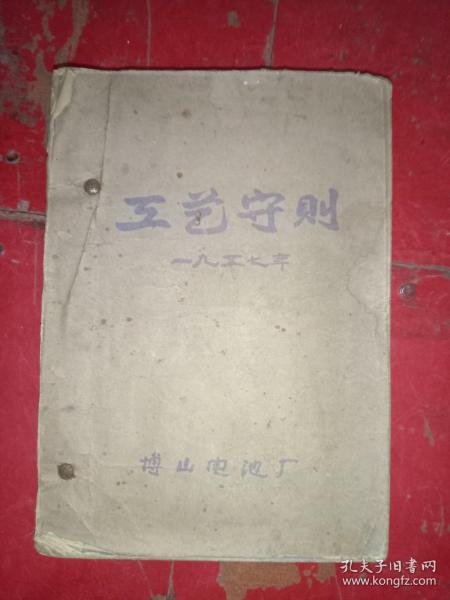 工艺守则
一九五七年
博山电池厂
孔夫子旧书网
www.kongfz.com